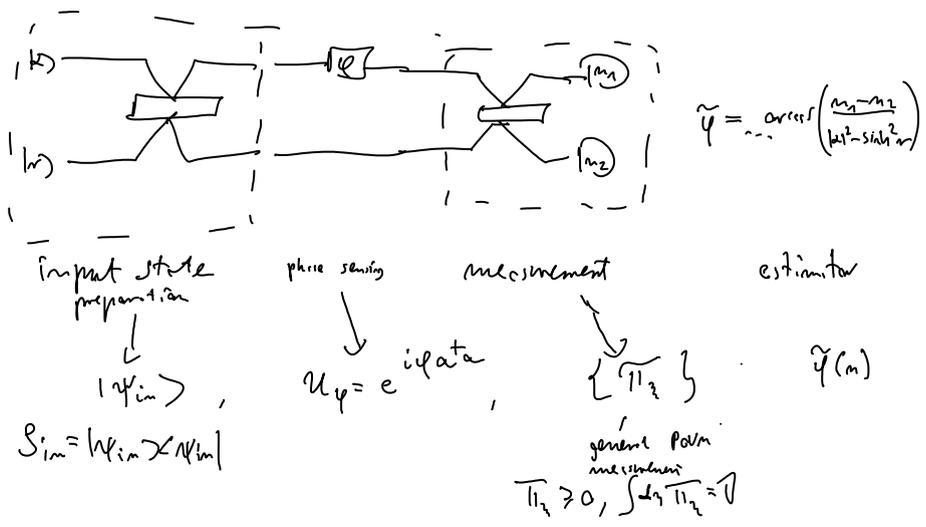 |α⟩
φ
|n₁
|r⟩
|n₂
φ̃ = ... arccos( (n₁-n₂) / (|α|²-sinh²r) )
input state
preparation
phase sensing
measurement
estimator
|ψin⟩ , Uφ = e^{iφa†a} , { Π } . φ̃(n)
ρin = |ψin⟩⟨ψin|
general POVM
measurement
Π ≥ 0, ∫d Π = 1